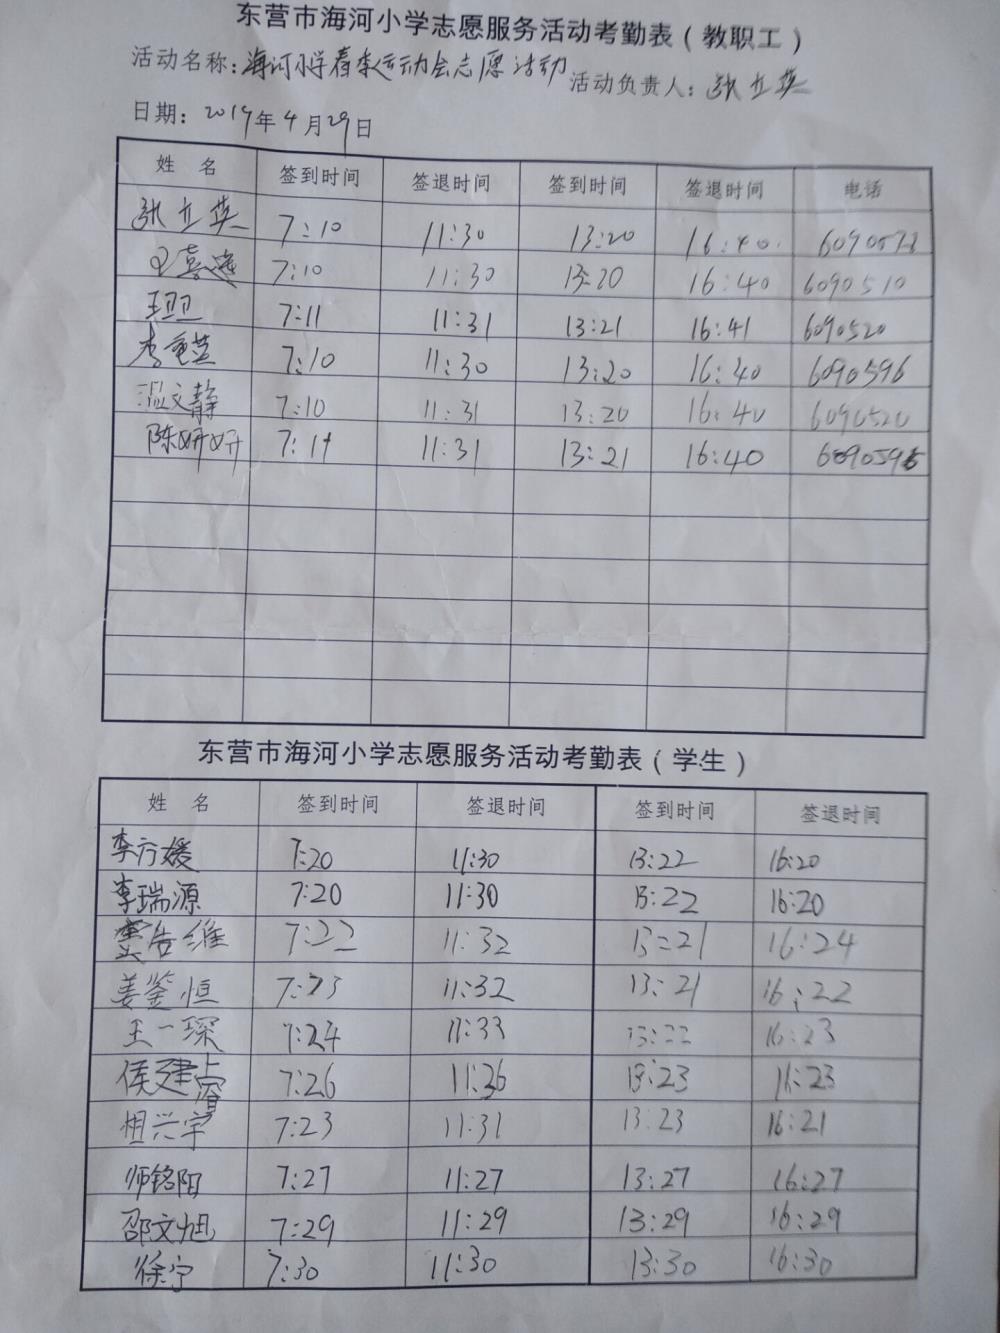 东营市海河小学志愿服务活动考勤表（教职工）
活动名称：海河小学春季运动会志愿活动 活动负责人：张立英
日期：2019年4月29日
姓名 签到时间 签退时间 签到时间 签退时间 电话
张立英 7:10 11:30 13:20 16:40
7:10 11:30 13:20 16:40 6090510
王卫卫 7:11 11:31 13:21 16:41 6090520
7:10 11:30 13:20 16:40 6090596
温文静 7:10 11:31 13:20 16:40 6090520
陈妍妍 7:11 11:31 13:21 16:40
东营市海河小学志愿服务活动考勤表（学生）
姓名 签到时间 签退时间 签到时间 签退时间
李方媛 7:20 11:30 13:22 16:20
李瑞源 7:20 11:30 13:22 16:20
7:22 11:32 13:21 16:24
姜鉴恒 7:23 11:32 13:21 16:22
王一琛 7:24 11:33 13:22 16:23
侯建 7:26 11:36 13:23 16:23
兴宇 7:23 11:31 13:23 16:21
师铭阳 7:27 11:27 13:27 16:27
邵文旭 7:29 11:29 13:29 16:29
徐宁 7:30 11:30 13:30 16:30